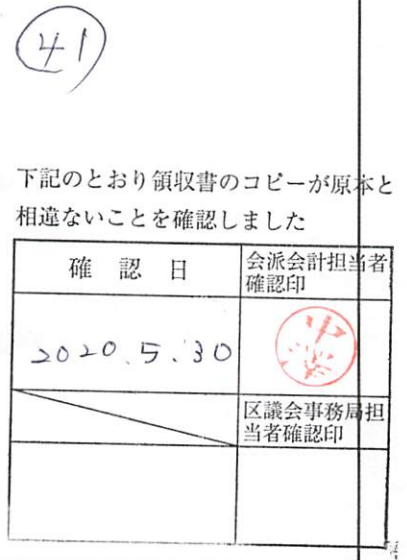 41
下記のとおり領収書のコピーが原本と
相違ないことを確認しました
確認日
会派会計担当者
確認印
2020.5.30
区議会事務局担
当者確認印